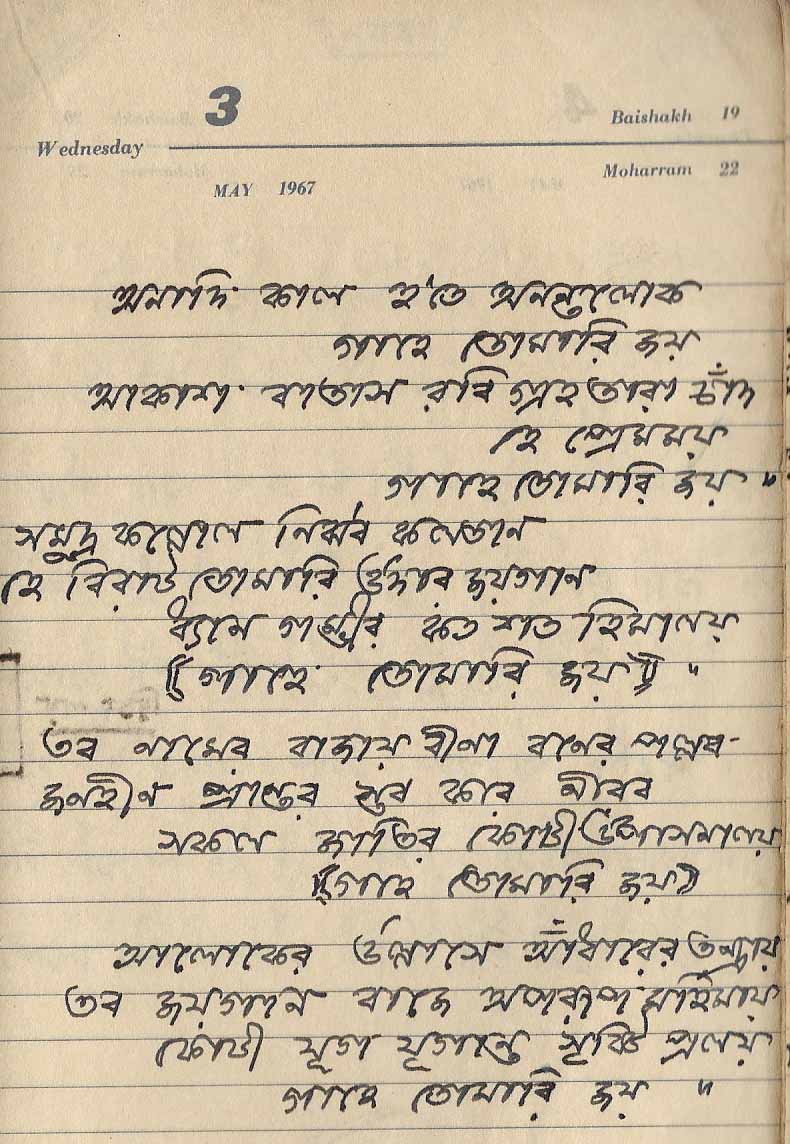 3
Baishakh 19
Wednesday
Moharram 22
MAY 1967
অনাদি কাল হ'তে অনন্তলোক
গাহে তোমারি জয়
আকাশ বাতাস রবি গ্রহ তারা চাঁদ
হে প্রেমময়
গাহে তোমারি জয় "
সমুদ্র কল্লোল নির্ঝর কলতান
হে বিরাট তোমারি উদার জয়গান
ধ্যান গম্ভীর কত শত হিমালয়
(গাহে তোমারি জয়) "
তব নামের বাজায় বীনা বনের পল্লব
জনহীন প্রান্তর স্তব করে নীরব
সকল জাতির কোটী উপাসনালয়
(গাহে তোমারি জয়)
আলোকের উল্লাসে আঁধারের তন্দ্রায়
তব জয়গান বাজে অপরূপ মহিমায়
কোটী যূগ যূগান্ত সৃষ্টি প্রলয়
গাহে তোমারি জয় "